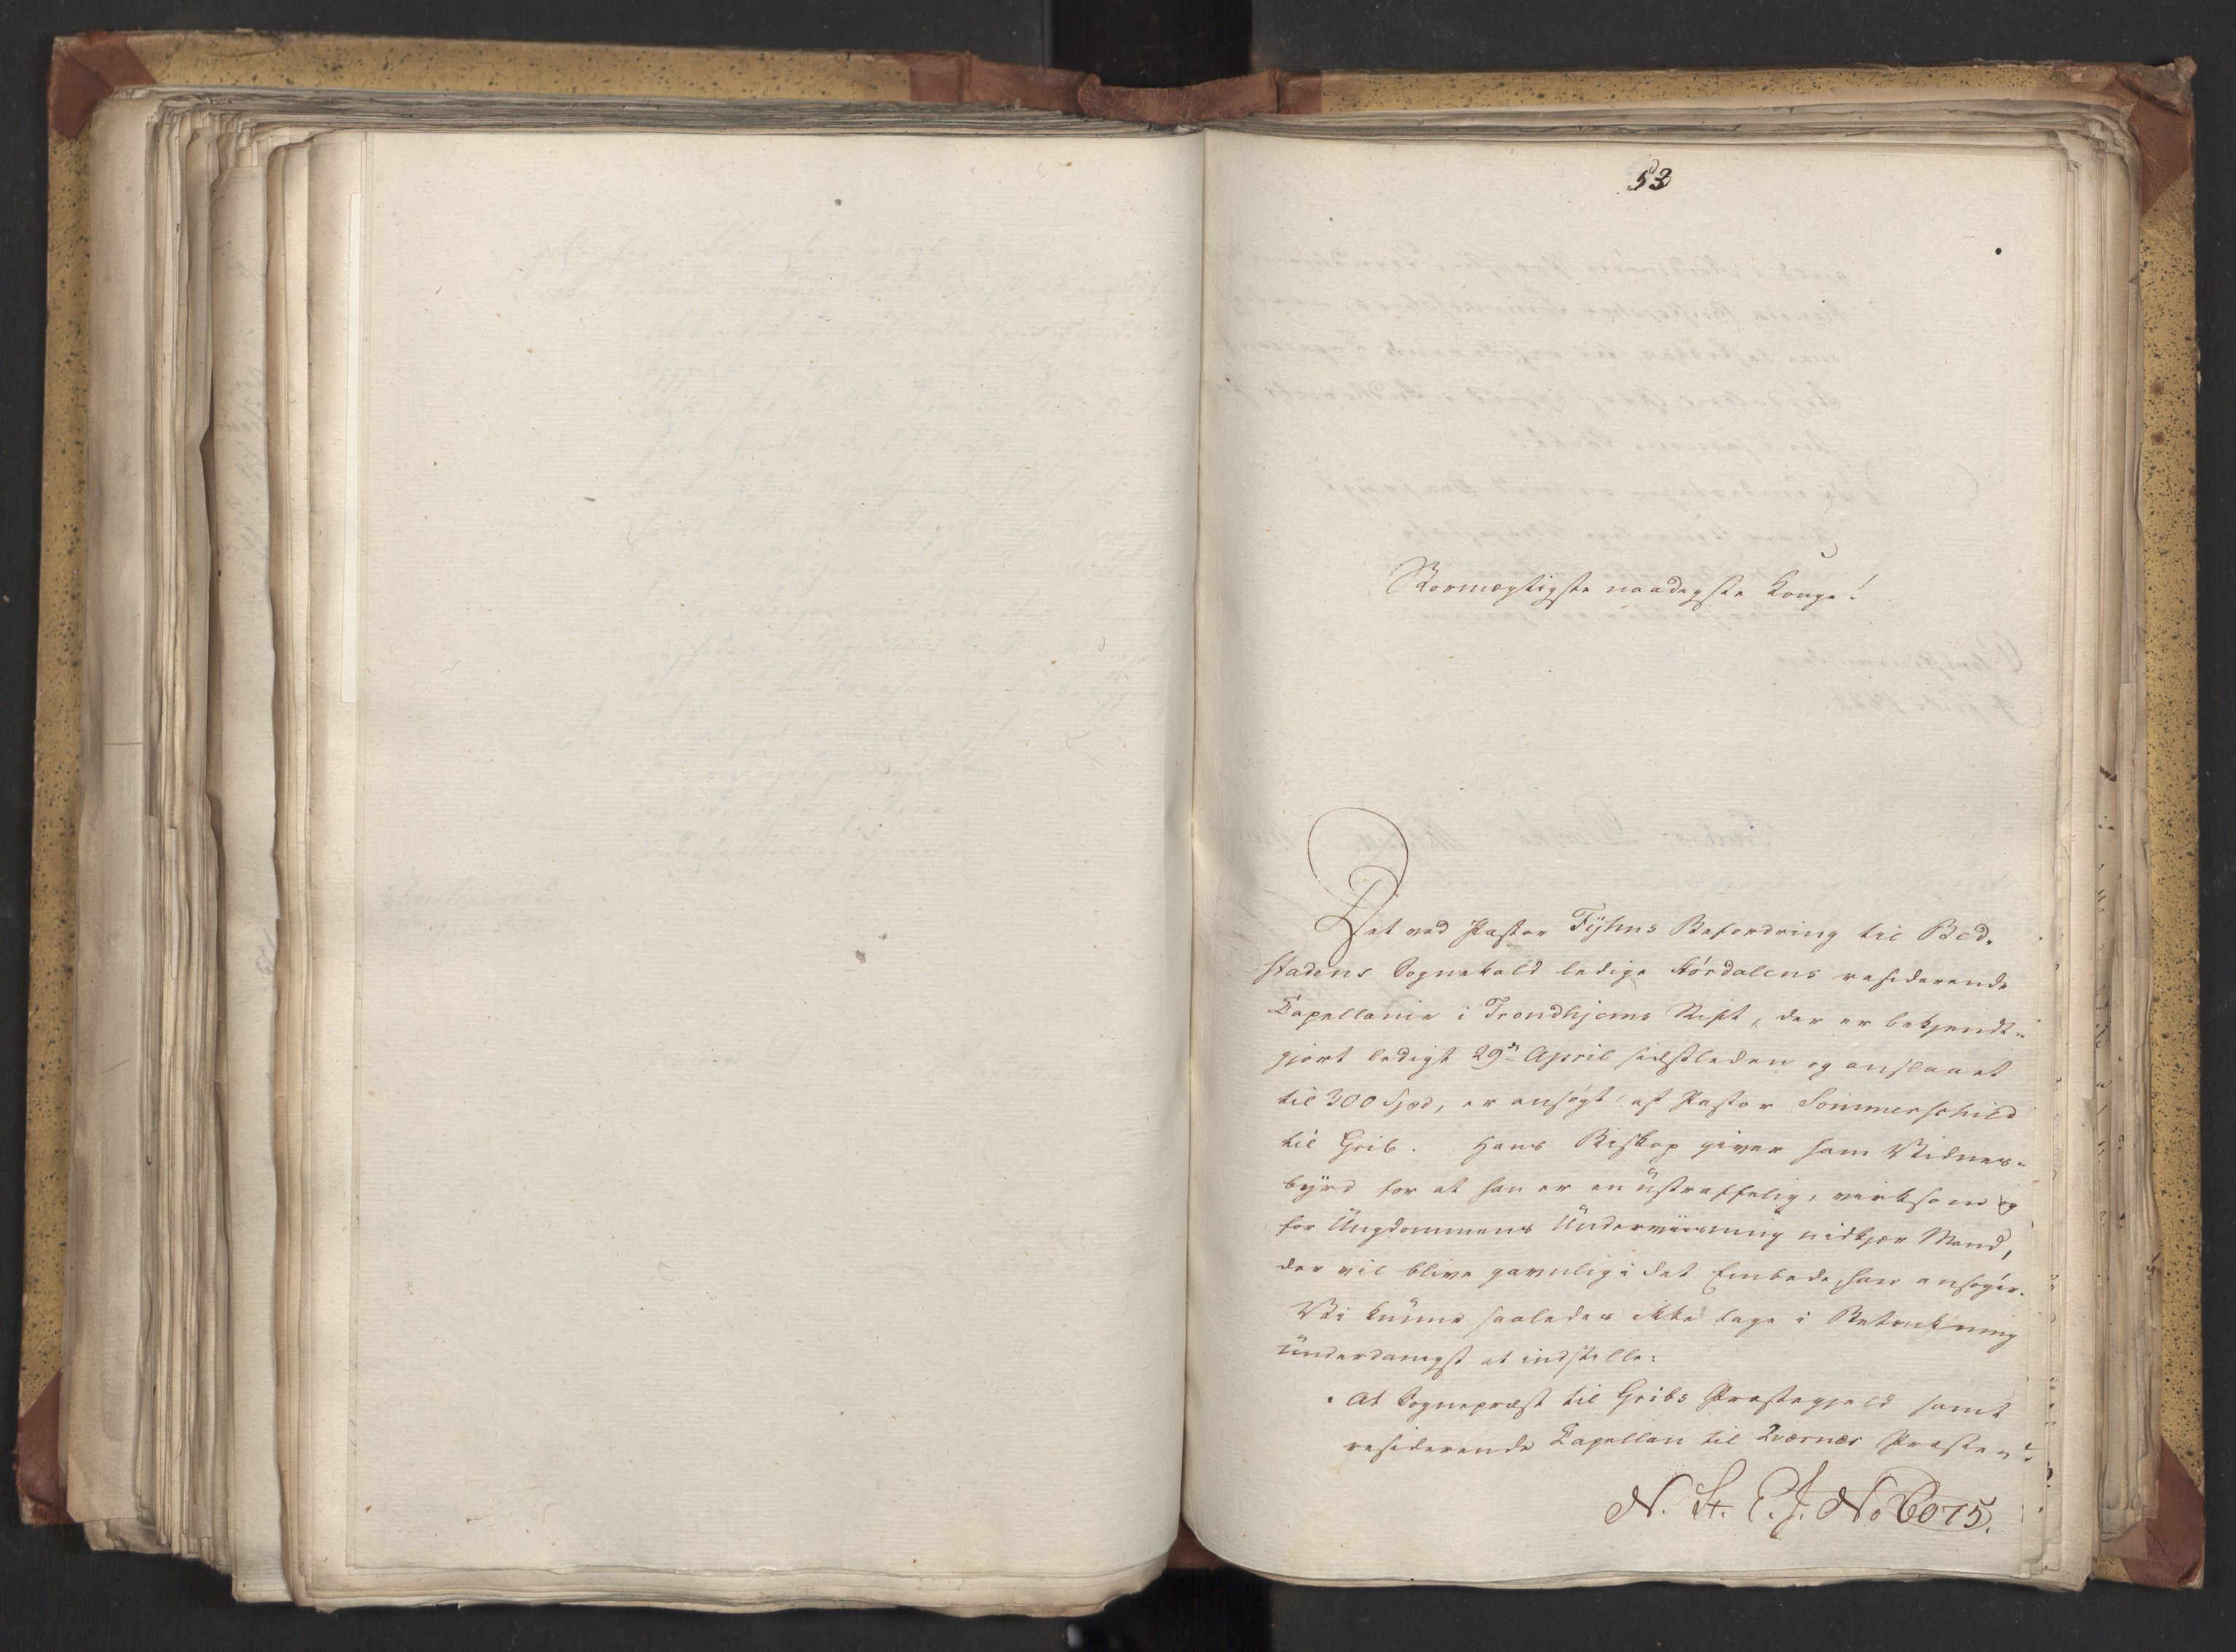 53
Stormægtigste naadigste Konge!
Det ved Pastor Tyhns Befordring til Bed-
stadens Sognekald ledige Stördalens residerende
Capellanie i Trondhjems Stift, der er bekjendt-
gjort ledigt 29de April sidstleden og anslaaet
til 300 Spd, er ansøgt af Pastor Sommerschild
til Grib. Hans Biskop giver ham Vidnes-
byrd for at han er en ustraffelig, virksom og
for Ungdommens Underviisning nidkjær Mand,
der vil blive gavnlig i det Embede, han ansøger.
Vi kunne saaledes ikke tage i Betænkning
underdanigst at indstille:
At Sognepræst til Gribs Præstegjeld samt
residerende Capellan til Qværnes Præste-
N. St. E. J. No 6075.